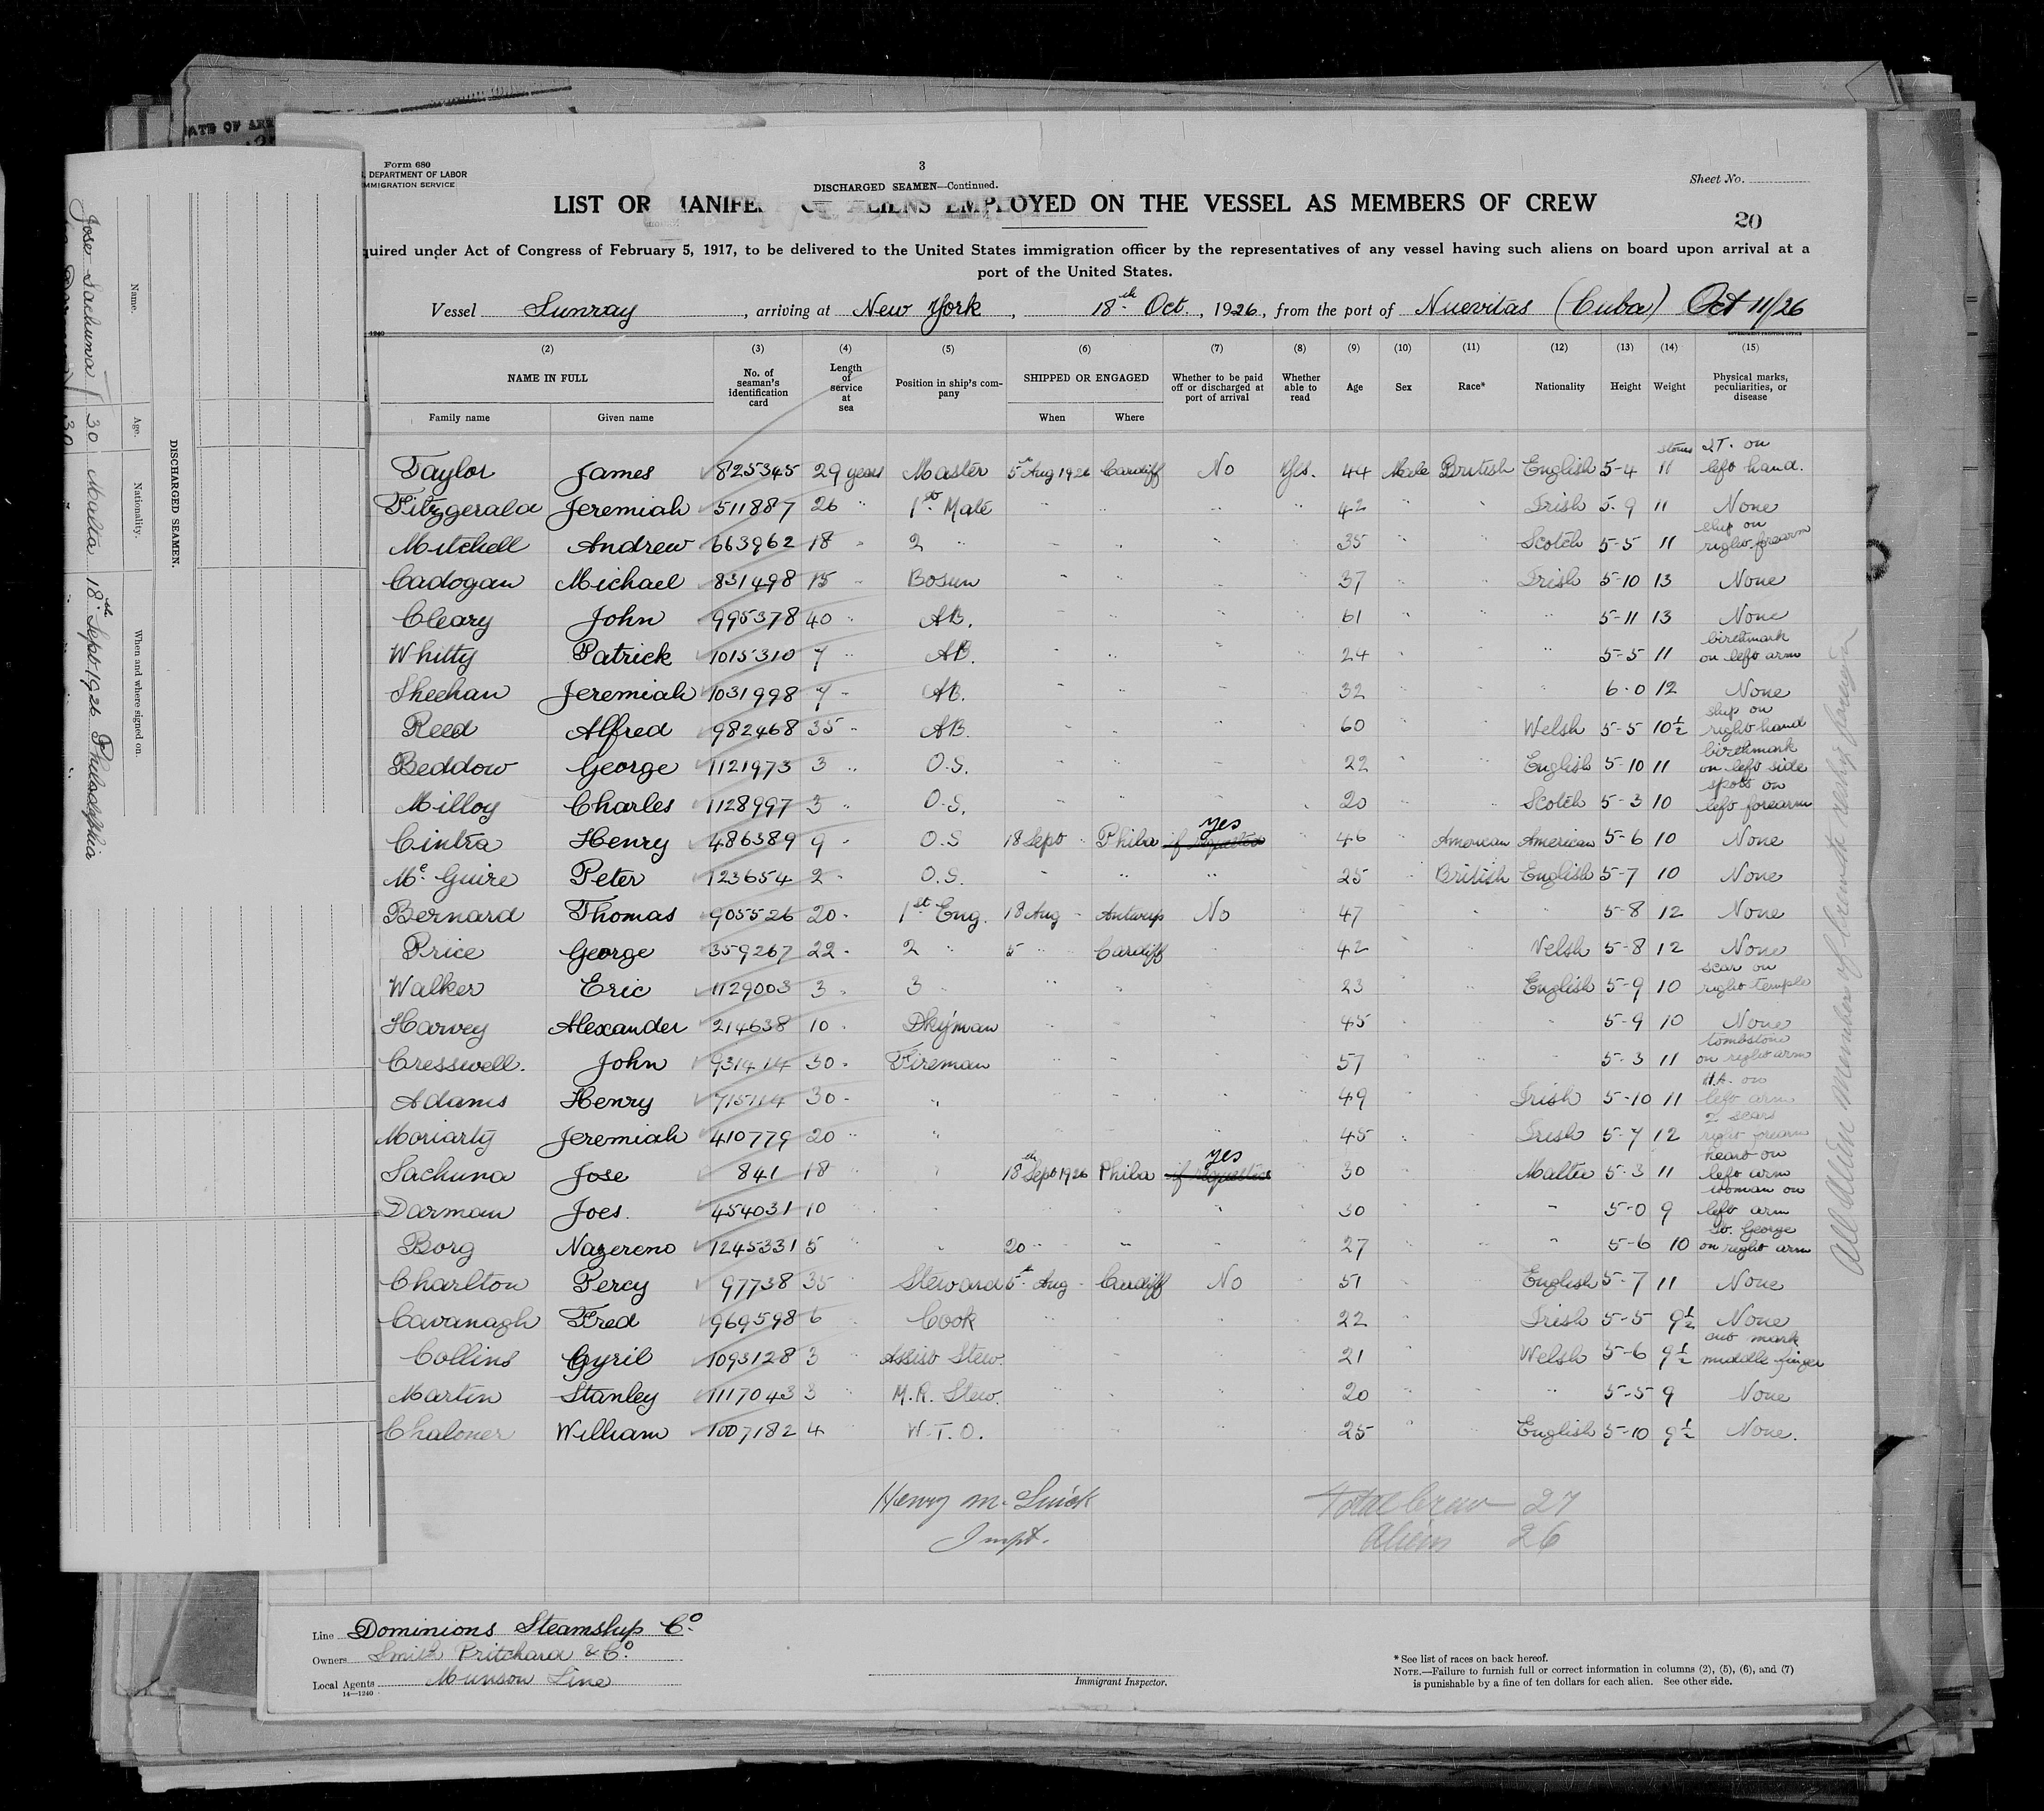 ATE OF ARR
Form 680
DEPARTMENT OF LABOR
MMIGRATION SERVICE
3
DISCHARGED SEAMEN—Continued.
Sheet No.
LIST OR MANIFEST OF ALIENS EMPLOYED ON THE VESSEL AS MEMBERS OF CREW
20
quired under Act of Congress of February 5, 1917, to be delivered to the United States immigration officer by the representatives of any vessel having such aliens on board upon arrival at a
port of the United States.
Vessel Sunray, arriving at New York, 18th Oct., 1926, from the port of Nuevitas (Cuba) Oct 11/26
(2) (3) (4) (5) (6) (7) (8) (9) (10) (11) (12) (13) (14) (15)
NAME IN FULL No. of seaman's identification card Length of service at sea Position in ship's company SHIPPED OR ENGAGED Whether to be paid off or discharged at port of arrival Whether able to read Age Sex Race* Nationality Height Weight Physical marks, peculiarities, or disease
Family name Given name When Where
Taylor James 825345 29 years Master 5th Aug 1926 Cardiff No Yes. 44 Male British English 5-4 stones 11 JT. on left hand.
Fitzgerald Jeremiah 511887 26 " 1st Mate " " " " 42 " " Irish 5-9 11 None
Mitchell Andrew 663962 18 " 2 " " " " " 35 " " Scotch 5-5 11 ship on right forearm
Cadogan Michael 831498 15 " Bosun " " " " 37 " " Irish 5-10 13 None
Cleary John 995378 40 " AB. " " " " 61 " " " 5-11 13 None
Whitty Patrick 1015310 7 " AB. " " " " 24 " " " 5-5 11 birthmark on left arm
Sheehan Jeremiah 1031998 7 " AB. " " " " 32 " " " 6-0 12 None
Reed Alfred 982468 35 " AB. " " " " 60 " " Welsh 5-5 10½ ship on right hand
Beddow George 1121973 3 " O.S. " " " " 22 " " English 5-10 11 birthmark on left side
Milloy Charles 1128997 3 " O.S. " " " " 20 " " Scotch 5-3 10 spots on left forearm
Cintra Henry 486389 9 " O.S 18 Sept " Phila yes if requested " 46 " American American 5-6 10 None
Mc Guire Peter 123654 2 " O.S. " " " " 25 " British English 5-7 10 None
Bernard Thomas 905526 20 " 1st Eng. 18 Aug " Antwerp No " 47 " " " 5-8 12 None
Price George 359267 22 " 2 " 5 " Cardiff " " 42 " " Welsh 5-8 12 None
Walker Eric 1129003 3 " 3 " " " " " 23 " " English 5-9 10 scar on right temple
Harvey Alexander 214638 10 " Dkyman " " " " 45 " " " 5-9 10 None
Cresswell. John 931414 30 " Fireman " " " " 57 " " " 5-3 11 tombstone on right arm
Adams Henry 715114 30 " " " " " " 49 " " Irish 5-10 11 H.A. on left arm
Moriarty Jeremiah 410779 20 " " " " " " 45 " " Irish 5-7 12 2 scars right forearm
Sachuna Jose 841 18 " 18th Sept 1926 Phila yes if requested " 30 " " Malta 5-3 11 heart on left arm
Darman Joes. 454031 10 " " " " " " 30 " " " 5-0 9 woman on left arm
Borg Nazereno 1245331 5 " " 20 " " " " 27 " " " 5-6 10 St. George on right arm
Charlton Percy 97738 35 " Steward 5th Aug " Cardiff No " 51 " " English 5-7 11 None
Cavanagh Fred 969598 6 " Cook " " " " 22 " " Irish 5-5 9½ None
Collins Cyril 1093128 3 " Assist Stew. " " " " 21 " " Welsh 5-6 9½ cut mark middle finger
Martin Stanley 1117043 3 " M.R. Stew. " " " " 20 " " " 5-5 9 None
Chaloner William 1007182 4 " W.T.O. " " " " 25 " " English 5-10 9½ None.
Henry M.
Inspt.
Total Crew 27
Aliens 26
Line Dominions Steamship Co.
Owners Smith Pritchard & Co.
Local Agents Munson Line
14—1240
Immigrant Inspector.
* See list of races on back hereof.
NOTE.—Failure to furnish full or correct information in columns (2), (5), (6), and (7)
is punishable by a fine of ten dollars for each alien. See other side.
DISCHARGED SEAMEN.
Name. Age. Nationality. When and where signed on.
Jose Sachuna 30 Malta 18th Sept 1926 Philadelphia
30